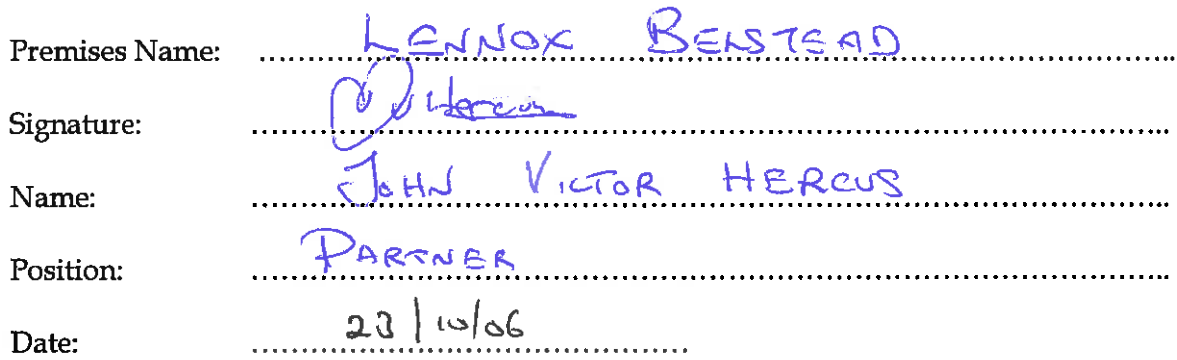 Premises Name: LENNOX BELSTEAD
Signature: JV Hercus
Name: JOHN VICTOR HERCUS
Position: PARTNER
Date: 23/10/06